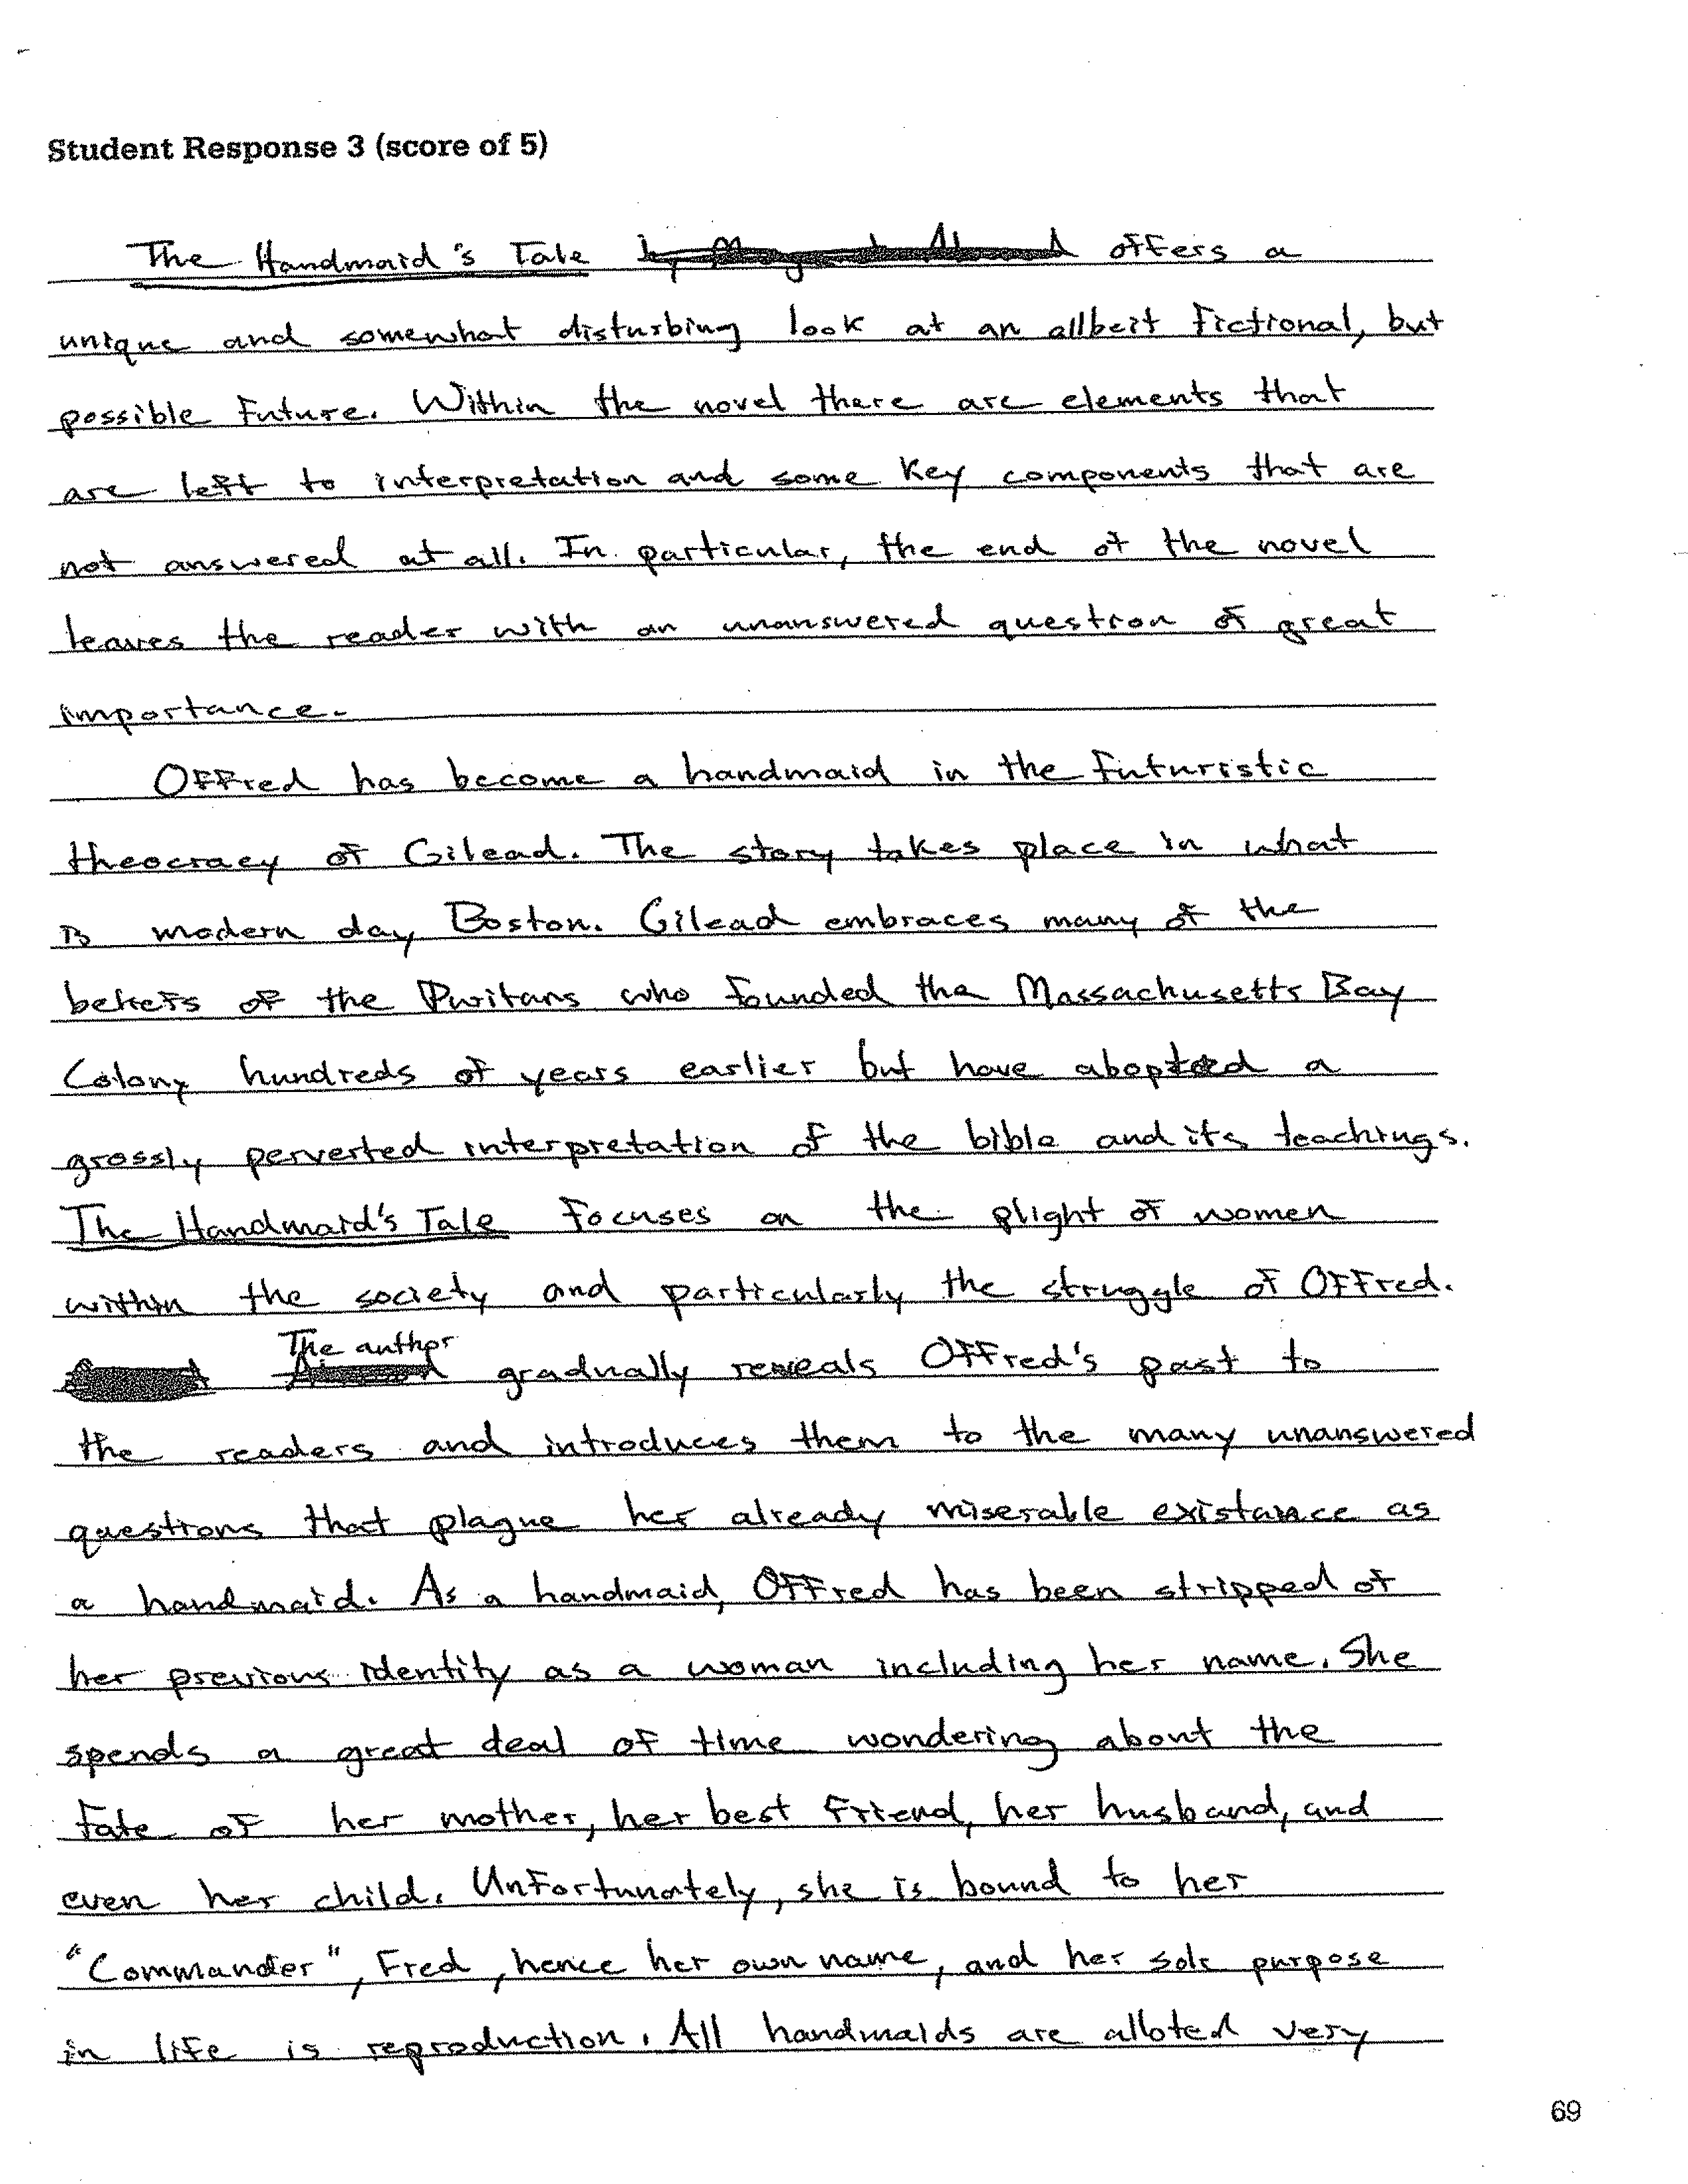 Student Response 3 (score of 5)
The Handmaid's Tale offers a
unique and somewhat disturbing look at an allbeit fictional, but
possible future. Within the novel there are elements that
are left to interpretation and some key components that are
not answered at all. In particular, the end of the novel
leaves the reader with an unanswered question of great
importance.
Offred has become a handmaid in the futuristic
theocracy of Gilead. The story takes place in what
is modern day Boston. Gilead embraces many of the
beliefs of the Puritans who founded the Massachusetts Bay
Colony hundreds of years earlier but have abopted a
grossly perverted interpretation of the bible and its teachings.
The Handmaid's Tale focuses on the plight of women
within the society and particularly the struggle of Offred.
The author gradually reveals Offred's past to
the readers and introduces them to the many unanswered
questions that plague her already miserable existance as
a handmaid. As a handmaid, Offred has been stripped of
her previous identity as a woman including her name. She
spends a great deal of time wondering about the
fate of her mother, her best friend, her husband, and
even her child. Unfortunately, she is bound to her
"Commander", Fred, hence her own name, and her sole purpose
in life is reproduction. All handmaids are alloted very
69